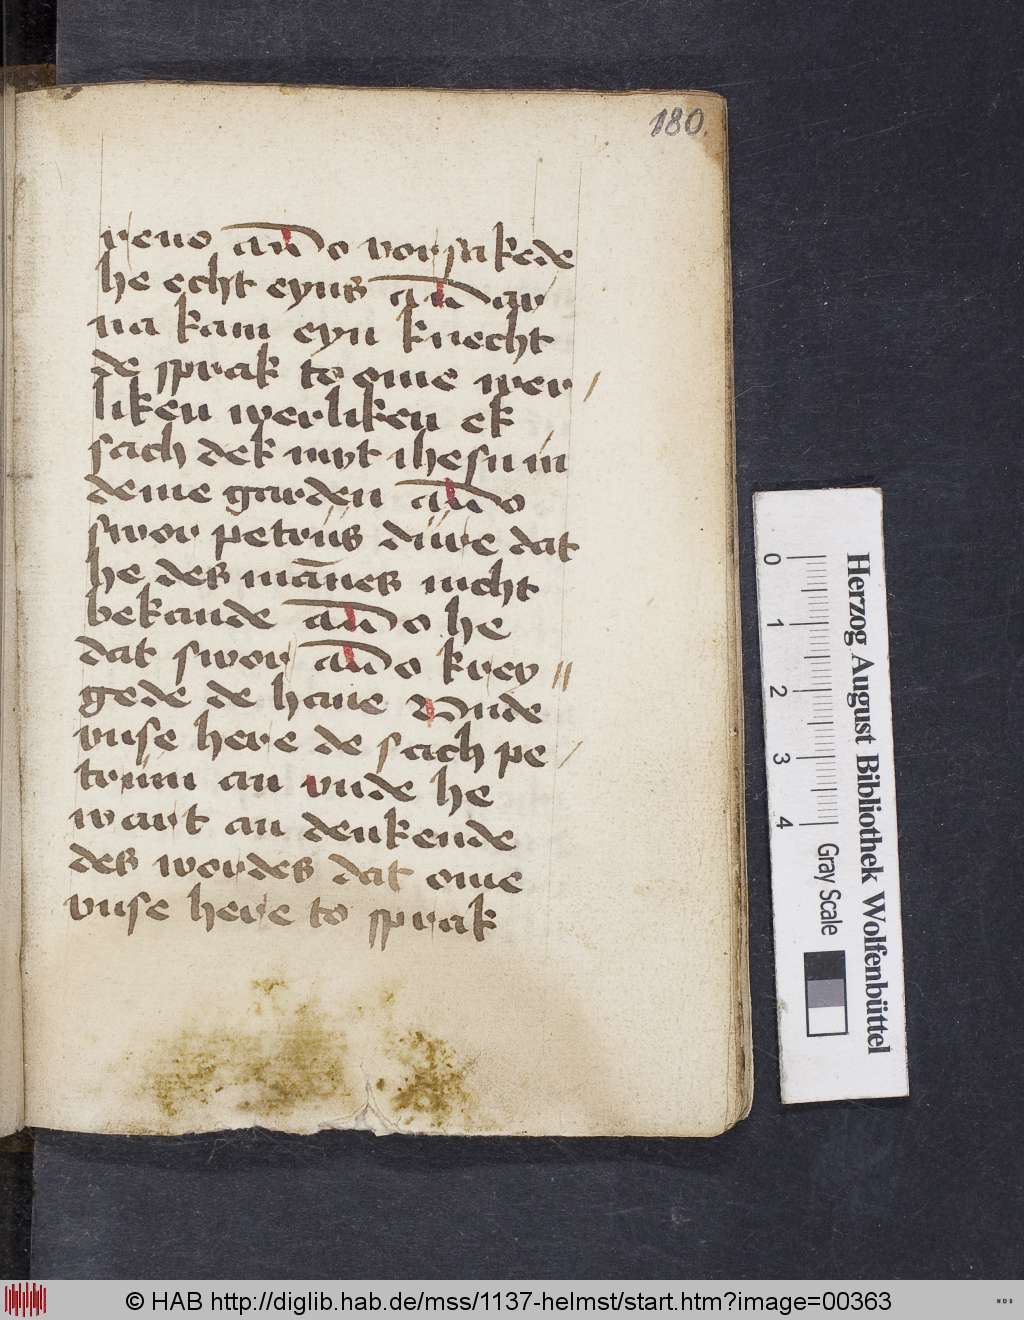 180
reno alßo vorsakede
he echt eyns alß ar
na kam eyn knecht
de sprak to ome wer
liken werliken ek
sach dek myt ihesu in
deme garden alßo
swor petrus dure dat
he des mānes nicht
bekande alßo he
dat swor alßo krey
gede de hane Unde
vnse here de sach pe
trum an vnde he
wart an denkende
des wordes dat ome
vnse here to sprak
0 1 2 3 4
Gray Scale
Herzog August Bibliothek Wolfenbüttel
© HAB http://diglib.hab.de/mss/1137-helmst/start.htm?image=00363